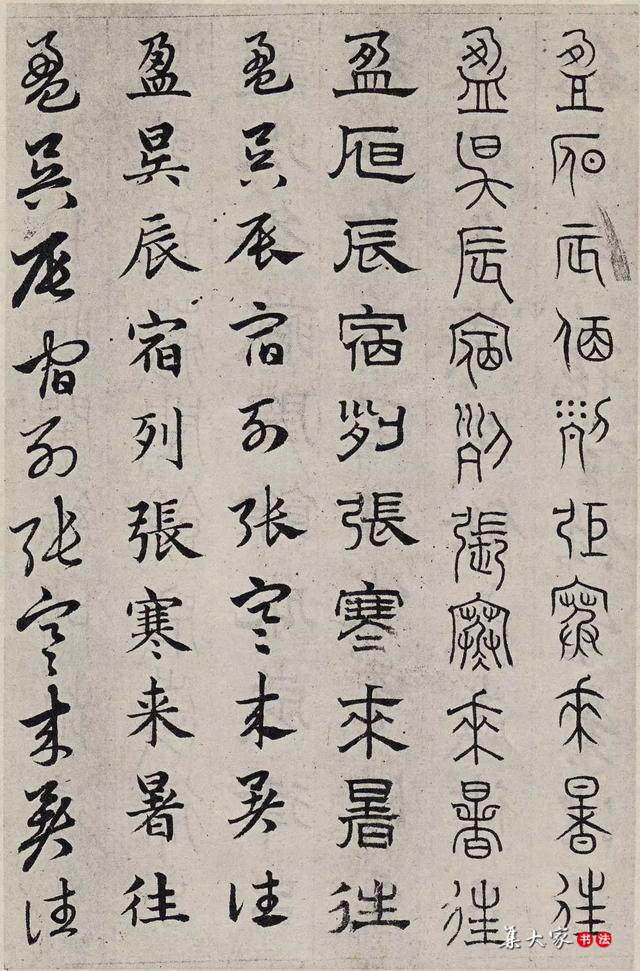 盈昃辰宿列張寒來暑往
盈昃辰宿列張寒來暑往
盈昃辰宿列張寒來暑往
盈昃辰宿列張寒来暑往
盈昃辰宿列張寒来暑往
盈昃辰宿列張寒来暑往
集大家书法